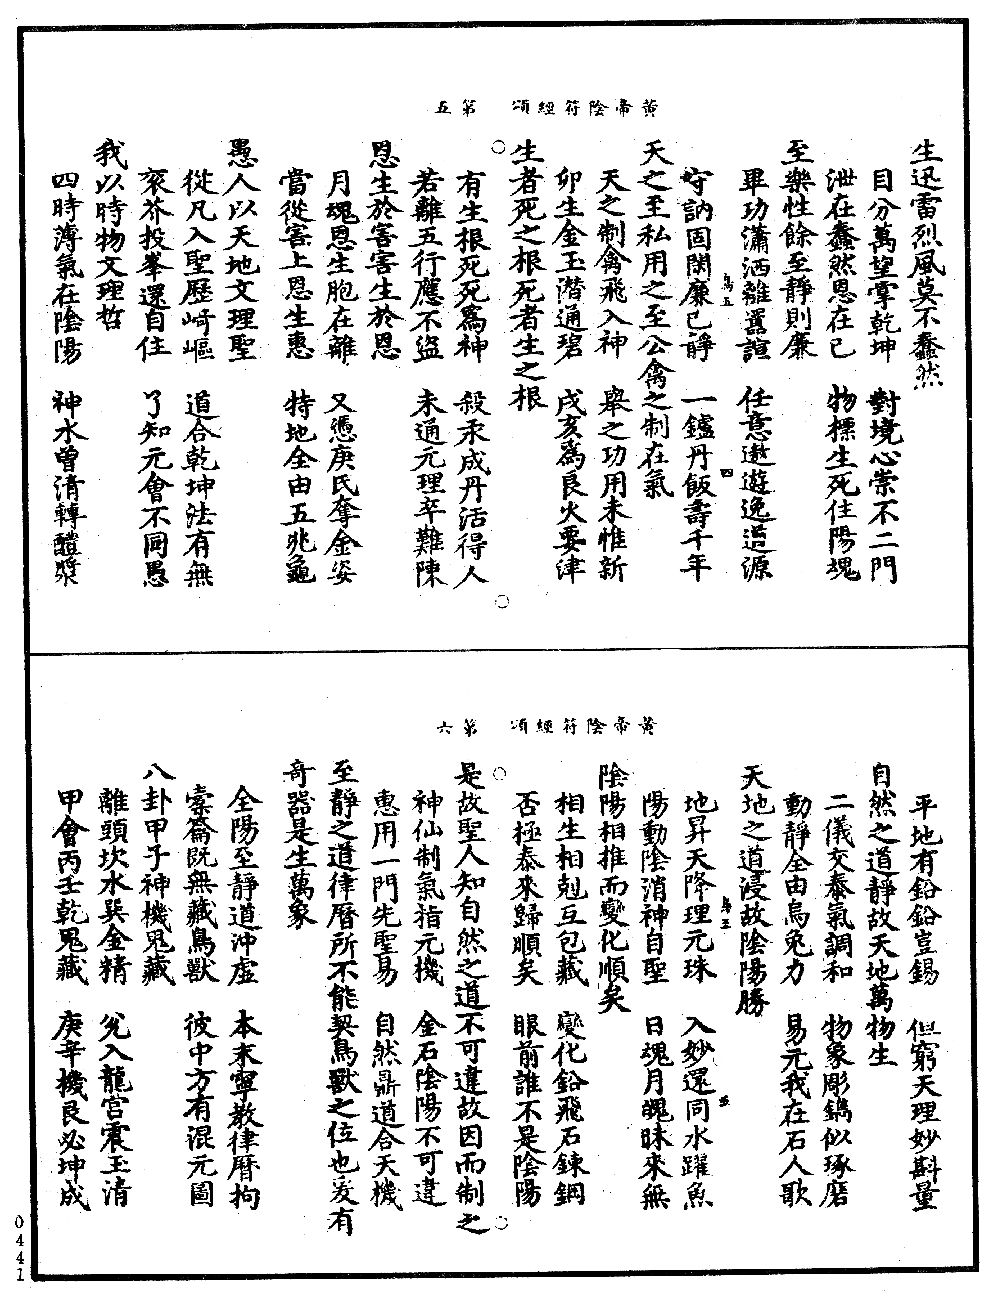 黃帝陰符經頌　第五
生迅雷烈風莫不蠢然
目分萬望掌乾坤　對境心崇不二門
泄在蠢然恩在己　物標生死住陽魂
至樂性餘至靜則廉
畢功瀟洒離嚚諠　任意遨遊逸道源
守訥固閑廉已靜　一鑪丹飯壽千年
為五　四
天之至私用之至公禽之制在氣
天之制禽飛入神　舉之功用未惟新
卯生金玉潛通碧　戌亥為良火要津
生者死之根死者生之根
有生根死死為神　殺汞成丹活得人
若離五行應不盜　未通元理卒難陳
恩生於害害生於恩
月魂恩生胞在離　又憑庚氏奪金姿
當從害上恩生惠　特地全由五兆龜
愚人以天地文理聖
從凡入聖歷崎嶇　道合乾坤法有無
衮芥投峯還自住　了知元會不同愚
我以時物文理哲
四時薄氣在陰陽　神水曾清轉醴漿
黃帝陰符經頌　第六
平地有鉛鉛豈錫　但窮天理妙斟量
自然之道靜故天地萬物生
二儀交泰氣調和　物象彫鐫似琢磨
動靜全由烏兔力　易元我在石人歌
天地之道浸故陰陽勝
地昇天降理元珠　入妙還同水躍魚
陽動陰消神自聖　日魂月魄昧來無
陰陽相推而變化順矣
相生相剋互包藏　變化鉛飛石鍊鋼
否極泰來歸順矣　眼前誰不是陰陽
是故聖人知自然之道不可違故因而制之
神仙制氣指元機　金石陰陽不可違
惠用一門先聖易　自然鼎道合天機
至靜之道律曆所不能契鳥獸之位也爰有
奇器是生萬象
全陽至靜道沖虛　本末寧教律曆拘
橐籥既無藏鳥獸　彼中方有混元圖
八卦甲子神機鬼藏
離頭坎水巽金精　兊入龍宮震玉清
甲會丙壬乾鬼藏　庚辛機艮必坤成
0441